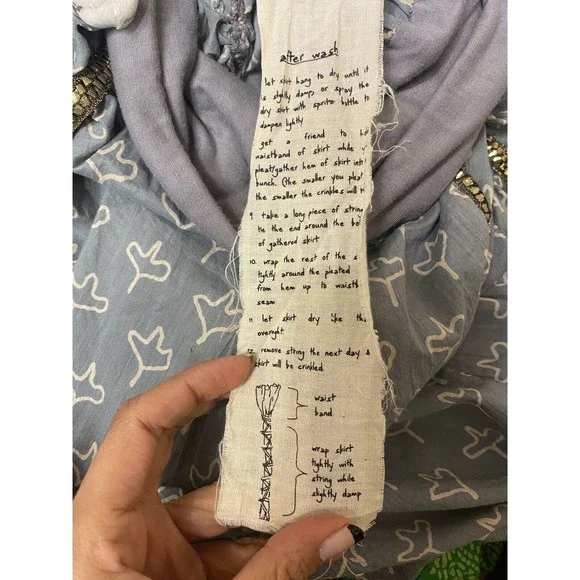 after wash
let skirt hang to dry until it
is slightly damp, or spray the
dry skirt with spritz bottle to
dampen lightly
get a friend to
waistband of skirt while
pleat/gather hem of skirt
bunch. (the smaller you pleat
the smaller the crinkles will
9. take a long piece of string
tie the end around the
of gathered skirt
10. wrap the rest of the
tightly around the pleated
from hem up to
seam
11. let skirt dry like this
overnight.
12. remove string the next day &
skirt will be crinkled.
waist
band
wrap skirt
tightly with
string while
slightly damp